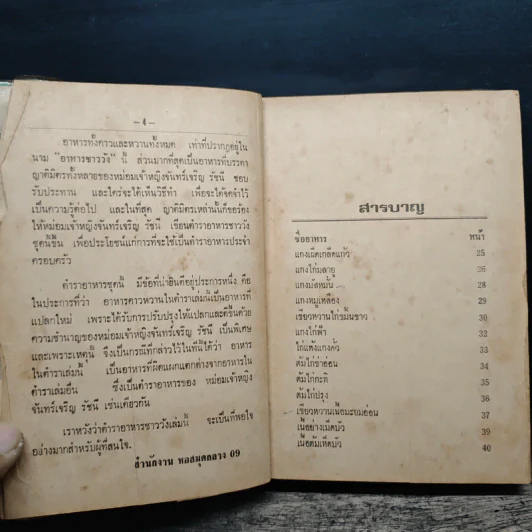 —4—
อาหารทั้งคาวและหวานทั้งหมด เท่าที่ปรากฏอยู่ใน
นาม "อาหารชาววัง" นี้ ส่วนมากที่สุดเป็นอาหารที่บรรดา
ญาติมิตรทั้งหลายของหม่อมเจ้าหญิงจันทร์เจริญ รัชนี ชอบ
รับประทาน และใคร่จะได้เห็นวิธีทำ เพื่อจะได้จดจำไว้
เป็นความรู้ต่อไป และในที่สุด ญาติมิตรเหล่านั้นก็ขอร้อง
ให้หม่อมเจ้าหญิงจันทร์เจริญ รัชนี เขียนตำราอาหารชาววัง
ชุดนี้ขึ้น เพื่อประโยชน์แก่การที่จะใช้เป็นตำราอาหารประจำ
ครอบครัว
ตำราอาหารชุดนี้ มีข้อที่น่ายินดีอยู่ประการหนึ่ง คือ
ในประการที่ว่า อาหารคาวหวานในตำราเล่มนี้เป็นอาหารที่
แปลกใหม่ เพราะได้รับการปรับปรุงให้แปลกและดีขึ้นด้วย
ความชำนาญของหม่อมเจ้าหญิงจันทร์เจริญ รัชนี เป็นพิเศษ
และเพราะเหตุนี้ จึงเป็นกรณีที่กล่าวไว้ในที่นี้ได้ว่า อาหาร
ในตำราเล่มนี้ เป็นอาหารที่ผิดแผกแตกต่างจากอาหารใน
ตำราเล่มอื่น ซึ่งเป็นตำราอาหารของ หม่อมเจ้าหญิง
จันทร์เจริญ รัชนี เช่นเดียวกัน
เราหวังว่าตำราอาหารชาววังเล่มนี้ จะเป็นที่พอใจ
อย่างมากสำหรับผู้ที่สนใจ.
สำนักงาน หอสมุดกลาง 09
สารบาญ
ชื่ออาหาร หน้า
แกงเผ็ดเกล็ดแก้ว 25
แกงไก่มลายู 26
แกงมัสหมั่น 28
แกงหมูเหลือง 29
เขียวหวานไก่มันขาว 30
แกงไก่ฟ้า 32
ไก่แพ้งแกงคั่ว 33
ต้มไก่ข่าอ่อน 34
ต้มไก่กะทิ 35
ต้มไก่ปรุง 36
เขียวหวานเนื้อมะขมอ่อน 37
เนื้อย่างเม็ดบัว 39
เนื้อต้มเห็ดบัว 40